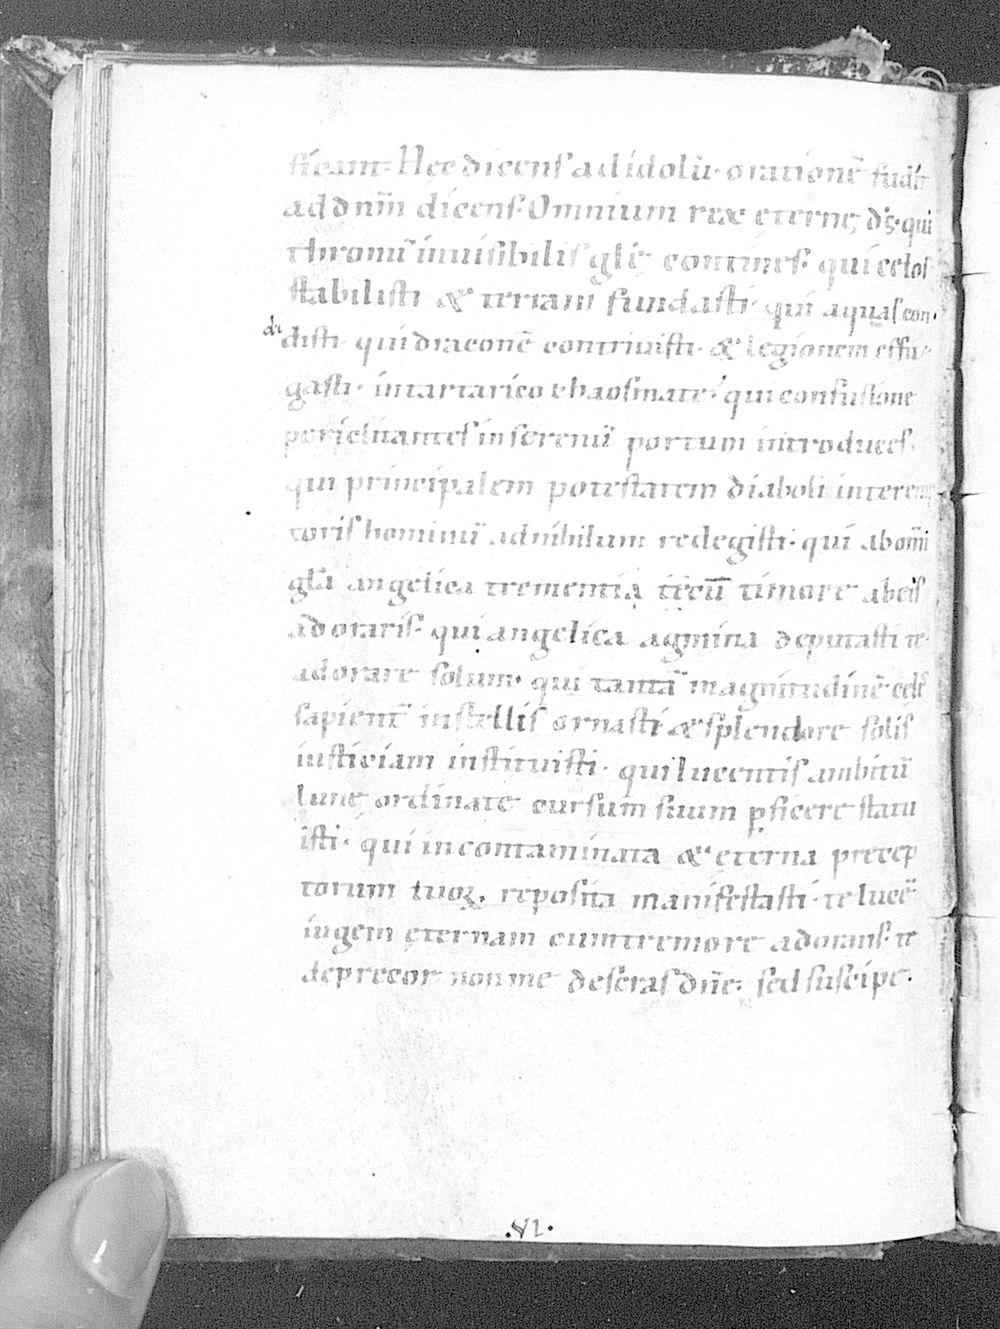 ficant. Hec dicens ad idolũ. orationẽ fudit
ad dnm̃ dicens. Omnium rex eterne ds̃. qui
thronũ inuisibilis glẽ contines. qui celos
stabilisti & terram fundasti. qui aquas con-
di disti. qui draconẽ contriuisti. & legionem effu-
gasti. in tartarico chaosmate. qui confusione
periclitantes in serenũ portum introduces.
qui principalem potestatem diaboli interemp
toris hominũ ad nihilum redegisti. qui ab om̃i
gl̃a angelica trementia tecũ timore ab eis
adoraris. qui angelica agmina deputasti te
adorare solum. qui tantã magnitudinẽ
sapient̃ in stellis ornasti & splendore solis
iusticiam instituisti. qui lucentis ambitũ
lune ordinate cursum suum ꝑficere statu
isti. qui incontaminata & eterna precep
torum tuoꝝ. reposita manifestasti. te lucẽ
iugem eternam cum tremore adorans. te
deprecor non me deseras dñe. sed suscipe.
.VI.